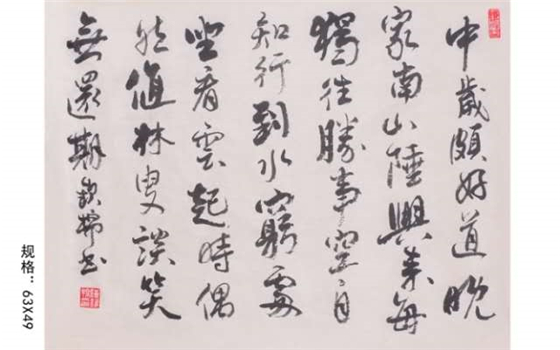 中歲頗好道晚
家南山陲興來每
獨往勝事空自
知行到水窮處
坐看雲起時偶
然值林叟談笑
無還期 书
规格：63X49